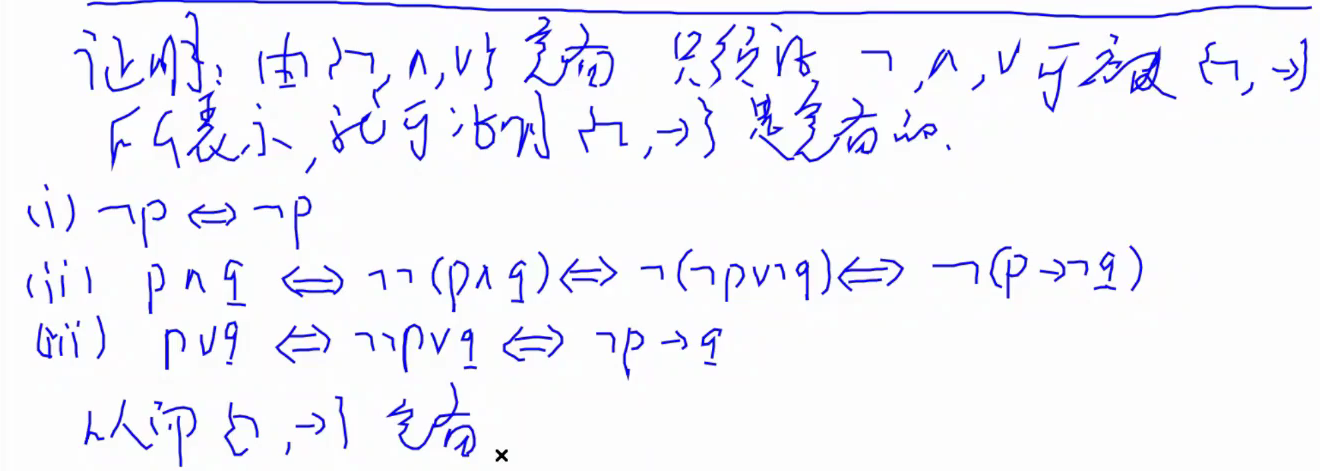 证明：由{¬,∧,∨}完备 只须证 ¬,∧,∨可被{¬,→}
所表示,就可证明{¬,→}是完备的.
(i) ¬p⇔¬p
(ii) p∧q⇔¬¬(p∧q)⇔¬(¬p∨¬q)⇔¬(p→¬q)
(iii) p∨q⇔¬¬p∨q⇔¬p→q
从而{¬,→}完备